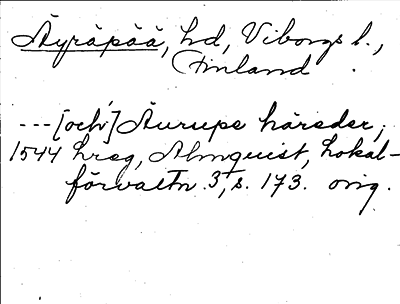 Äyräpää, hd, Viborgs l.,
Finland.
--- [och] Äurupe häreder,
1544 hreg, Almquist, Lokal-
förvaltn. 3, s. 173. orig.